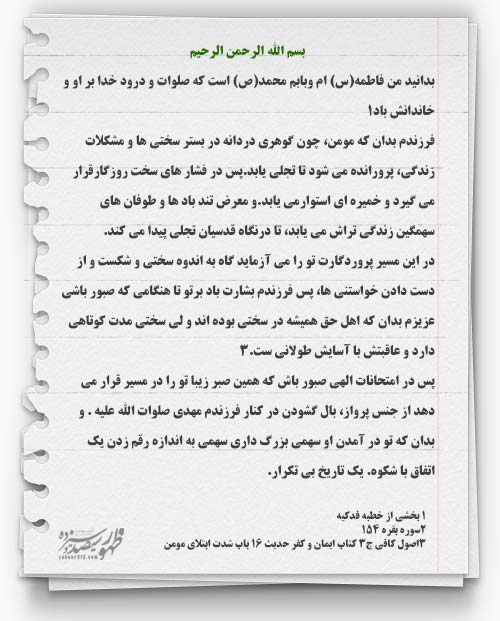 بسم الله الرحمن الرحیم
بدانید من فاطمه(س) ام وبابم محمد(ص) است که صلوات و درود خدا بر او و
خاندانش باد۱
فرزندم بدان که مومن، چون گوهری دردانه در بستر سختی ها و مشکلات
زندگی، پرورانده می شود تا تجلی یابد.پس در فشار های سخت روزگارقرار
می گیرد و خمیره ای استوارمی یابد.و معرض تند باد ها و طوفان های
سهمگین زندگی تراش می یابد، تا درنگاه قدسیان تجلی پیدا می کند.
در این مسیر پروردگارت تو را می آزماید گاه به اندوه سختی و شکست و از
دست دادن خواستنی ها، پس فرزندم بشارت باد برتو تا هنگامی که صبور باشی
عزیزم بدان که اهل حق همیشه در سختی بوده اند و لی سختی مدت کوتاهی
دارد و عاقبتش با آسایش طولانی ست.۳
پس در امتحانات الهی صبور باش که همین صبر زیبا تو را در مسیر قرار می
دهد از جنس پرواز، بال گشودن در کنار فرزندم مهدی صلوات الله علیه . و
بدان که تو در آمدن او سهمی بزرگ داری سهمی به اندازه رقم زدن یک
اتفاق با شکوه. یک تاریخ بی تکرار.
۱بخشی از خطبه فدکیه
۲سوره بقره ۱۵۴
۳اصول کافی ج۳ کتاب ایمان و کفر حدیث ۱۶ باب شدت ابتلای مومن
ظهور سیصد و سیزده
zohoor313.com